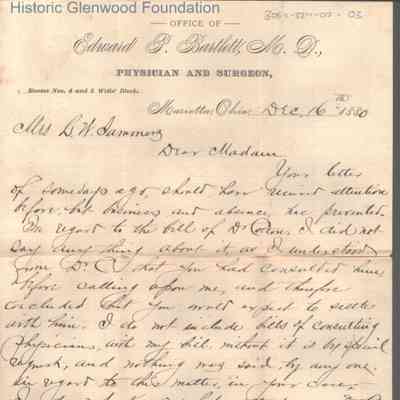 Historic Glenwood Foundation
OFFICE OF
Edward P. Bartlett, M. D.,
PHYSICIAN AND SURGEON,
Rooms Nos. 4 and 5 Wells' Block.
Marietta, Ohio, Dec. 16th 1880
Mrs L. W. Sammons
Dear Madam
Your letter
of somedays ago, should have received attention
before, but business and absence, has prevented.
In regard to the bill of Dr I did not
say any thing about it, as I understood
from Dr. C. that you had consulted him
before calling upon me, and therefore
concluded that you would expect to settle
with him. I do not include bills of consulting
Physicians, with my bill, without it is by special
request, and nothing was said, by any one
in regard to this matter, in your case.